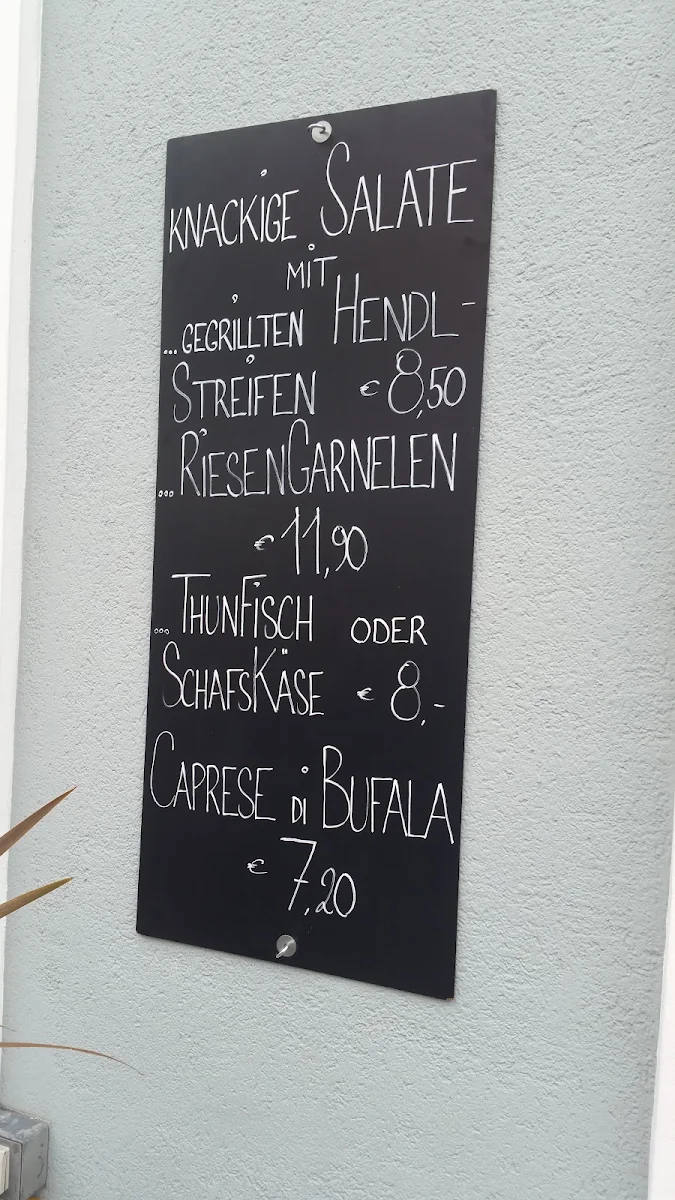 KNACKiGE SALATE
MiT
...GEGRiLLTEN HENDL-
STREiFEN € 8,50
...RiESENGARNELEN
€ 11,90
...THUNFiSCH ODER
SCHAFSKÄSE € 8,-
CAPRESE di BUFALA
€ 7,20